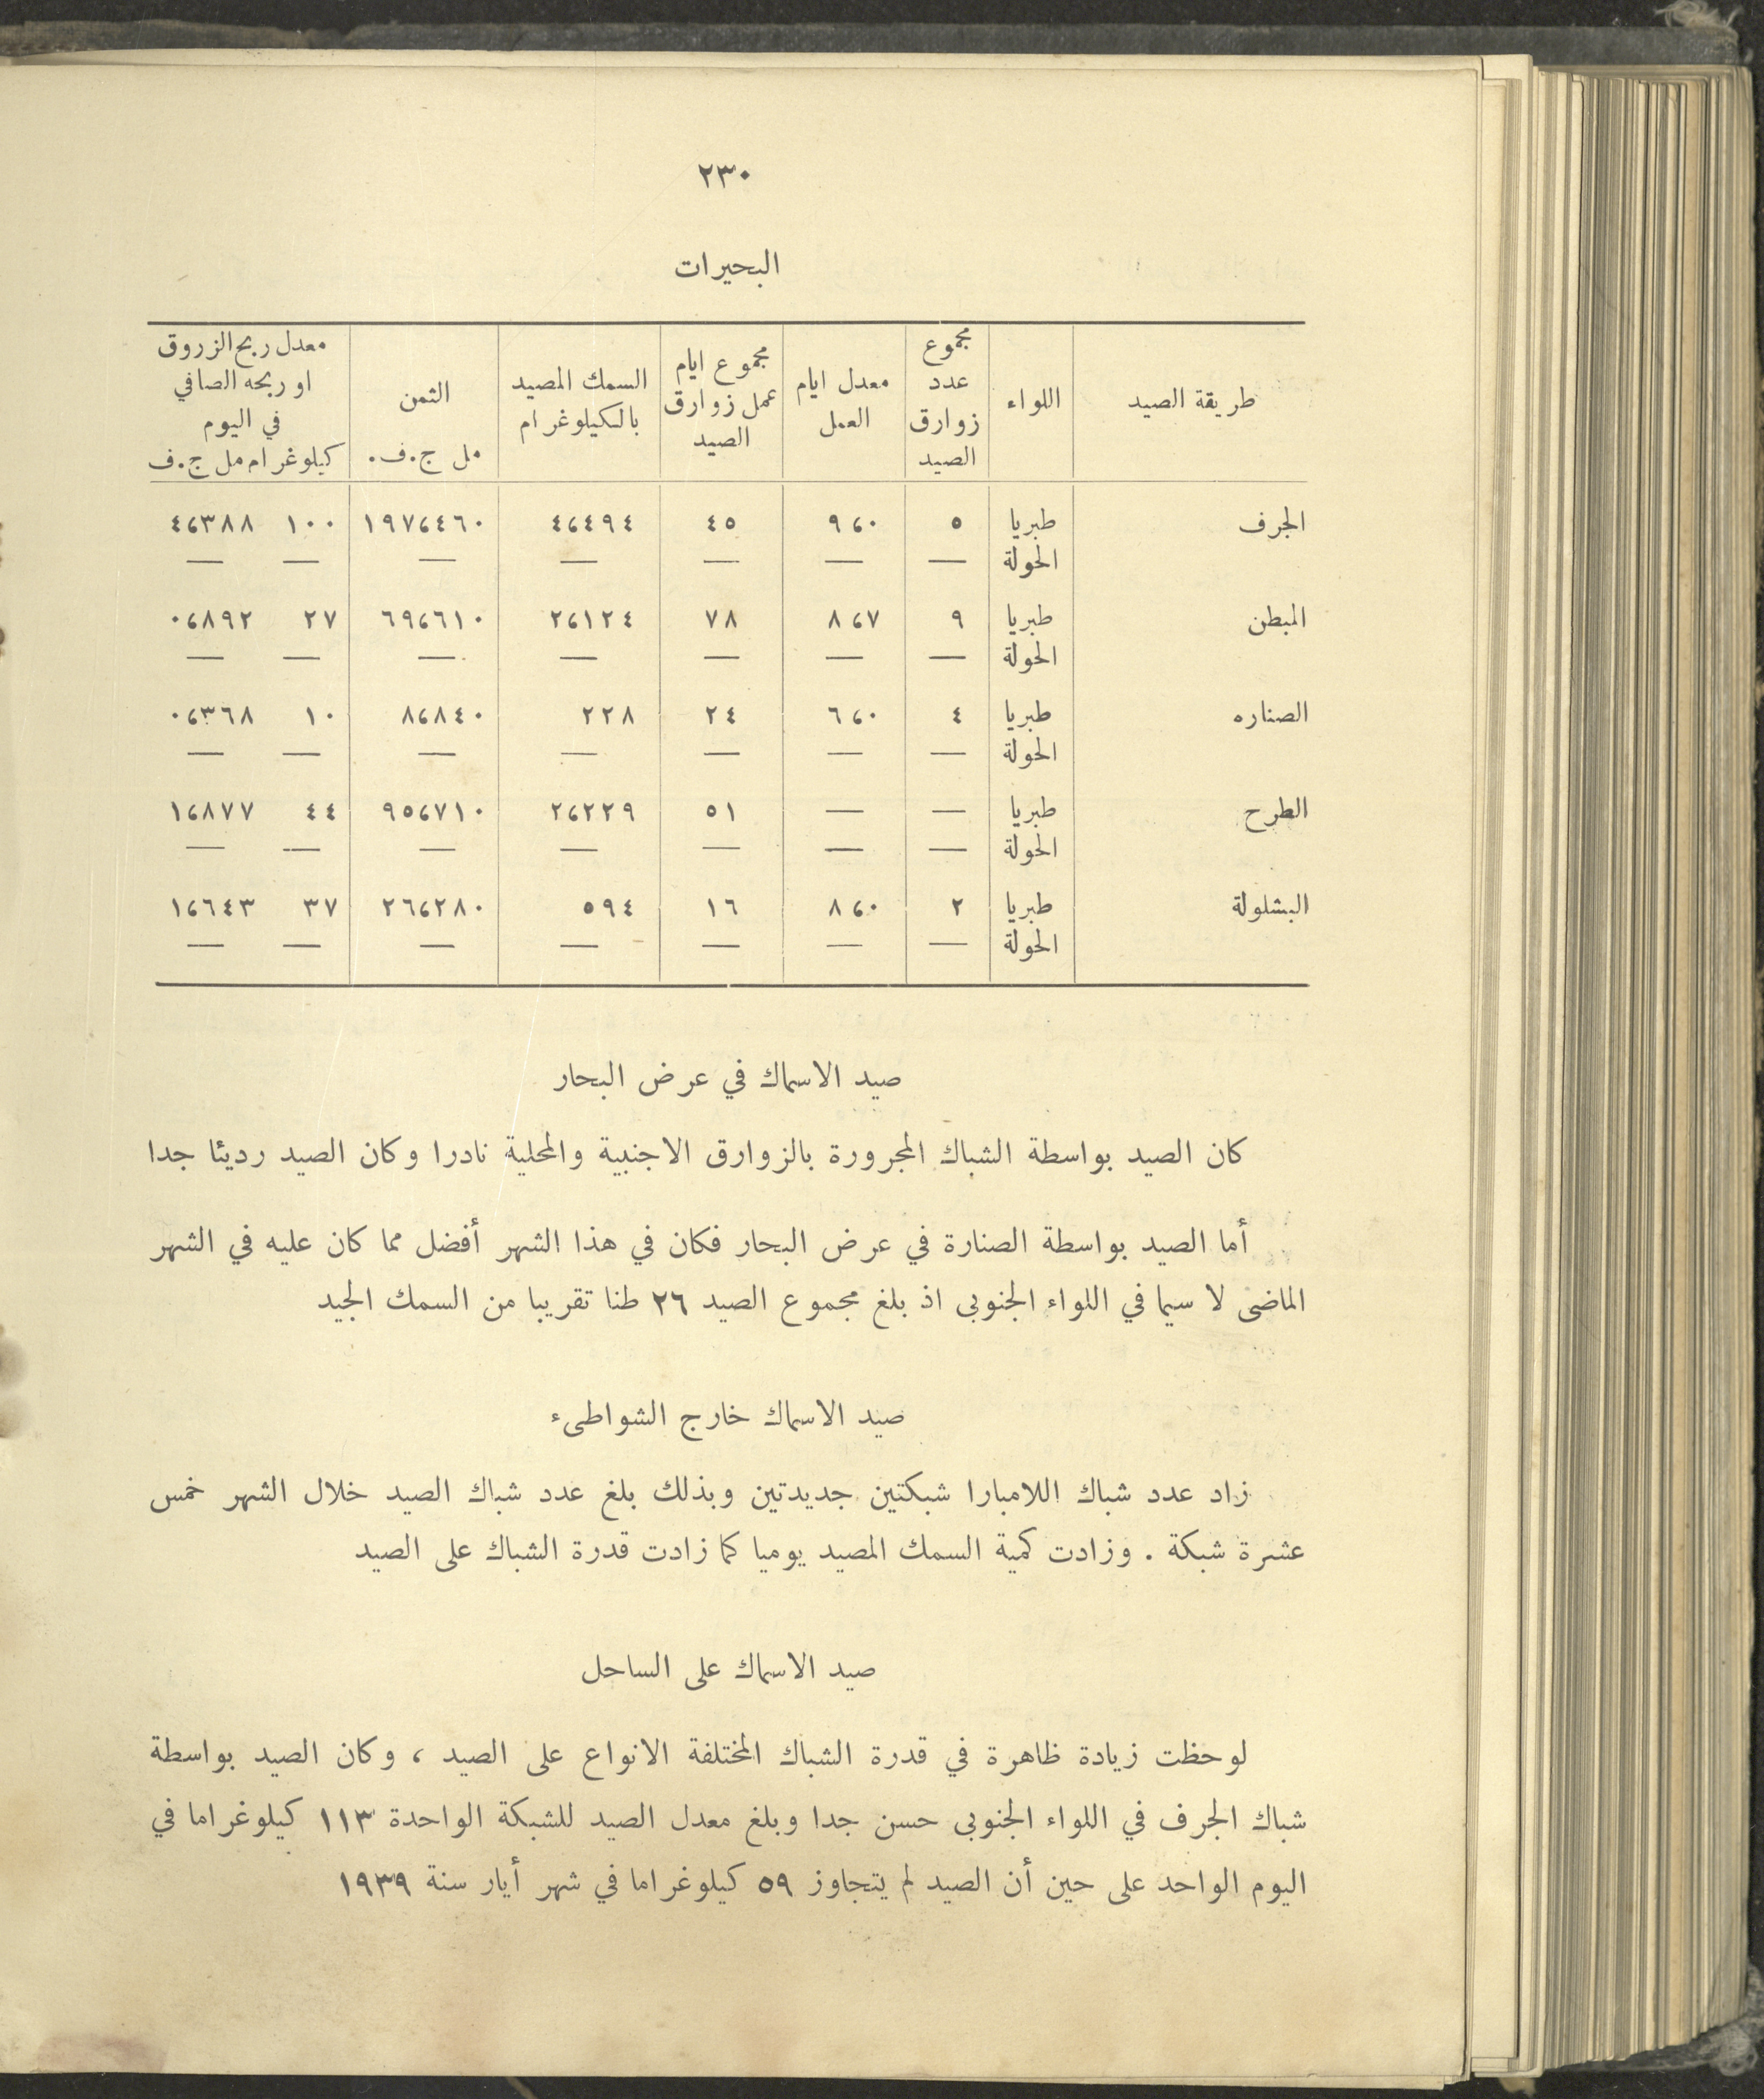 ٢٣٠
البحيرات
طريقة الصيد | اللواء | مجموع عدد زوارق الصيد | معدل ايام العمل | مجموع ايام عمل زوارق الصيد | السمك المصيد بالكيلوغرام | الثمن مل ج.ف. | معدل ربح الزروق او ربحه الصافي في اليوم كيلوغرام مل ج.ف
الجرف | طبريا | ٥ | ٩،٠ | ٤٥ | ٤،٤٩٤ | ١٩٧،٤٦٠ | ١٠٠ | ٤،٣٨٨
الحولة | — | — | — | — | — | — | —
المبطن | طبريا | ٩ | ٨،٧ | ٧٨ | ٢،١٢٤ | ٦٩،٦١٠ | ٢٧ | ٠،٨٩٢
الحولة | — | — | — | — | — | — | —
الصناره | طبريا | ٤ | ٦،٠ | ٢٤ | ٢٢٨ | ٨،٨٤٠ | ١٠ | ٠،٣٦٨
الحولة | — | — | — | — | — | — | —
الطرح | طبريا | — | — | ٥١ | ٢،٢٢٩ | ٩٥،٧١٠ | ٤٤ | ١،٨٧٧
الحولة | — | — | — | — | — | — | —
البشلولة | طبريا | ٢ | ٨،٠ | ١٦ | ٥٩٤ | ٢٦،٢٨٠ | ٣٧ | ١،٦٤٣
الحولة | — | — | — | — | — | — | —
صيد الاسماك في عرض البحار
كان الصيد بواسطة الشباك المجرورة بالزوارق الاجنبية والمحلية نادرا وكان الصيد رديئا جدا
أما الصيد بواسطة الصنارة في عرض البحار فكان في هذا الشهر أفضل مما كان عليه في الشهر
الماضى لا سيما في اللواء الجنوبى اذ بلغ مجموع الصيد ٢٦ طنا تقريبا من السمك الجيد
صيد الاسماك خارج الشواطىء
زاد عدد شباك اللامبارا شبكتين جديدتين وبذلك بلغ عدد شباك الصيد خلال الشهر خمس
عشرة شبكة . وزادت كمية السمك المصيد يوميا كما زادت قدرة الشباك على الصيد
صيد الاسماك على الساحل
لوحظت زيادة ظاهرة في قدرة الشباك المختلفة الانواع على الصيد ، وكان الصيد بواسطة
شباك الجرف في اللواء الجنوبى حسن جدا وبلغ معدل الصيد للشبكة الواحدة ١١٣ كيلوغراما في
اليوم الواحد على حين أن الصيد لم يتجاوز ٥٩ كيلوغراما في شهر أيار سنة ١٩٣٩